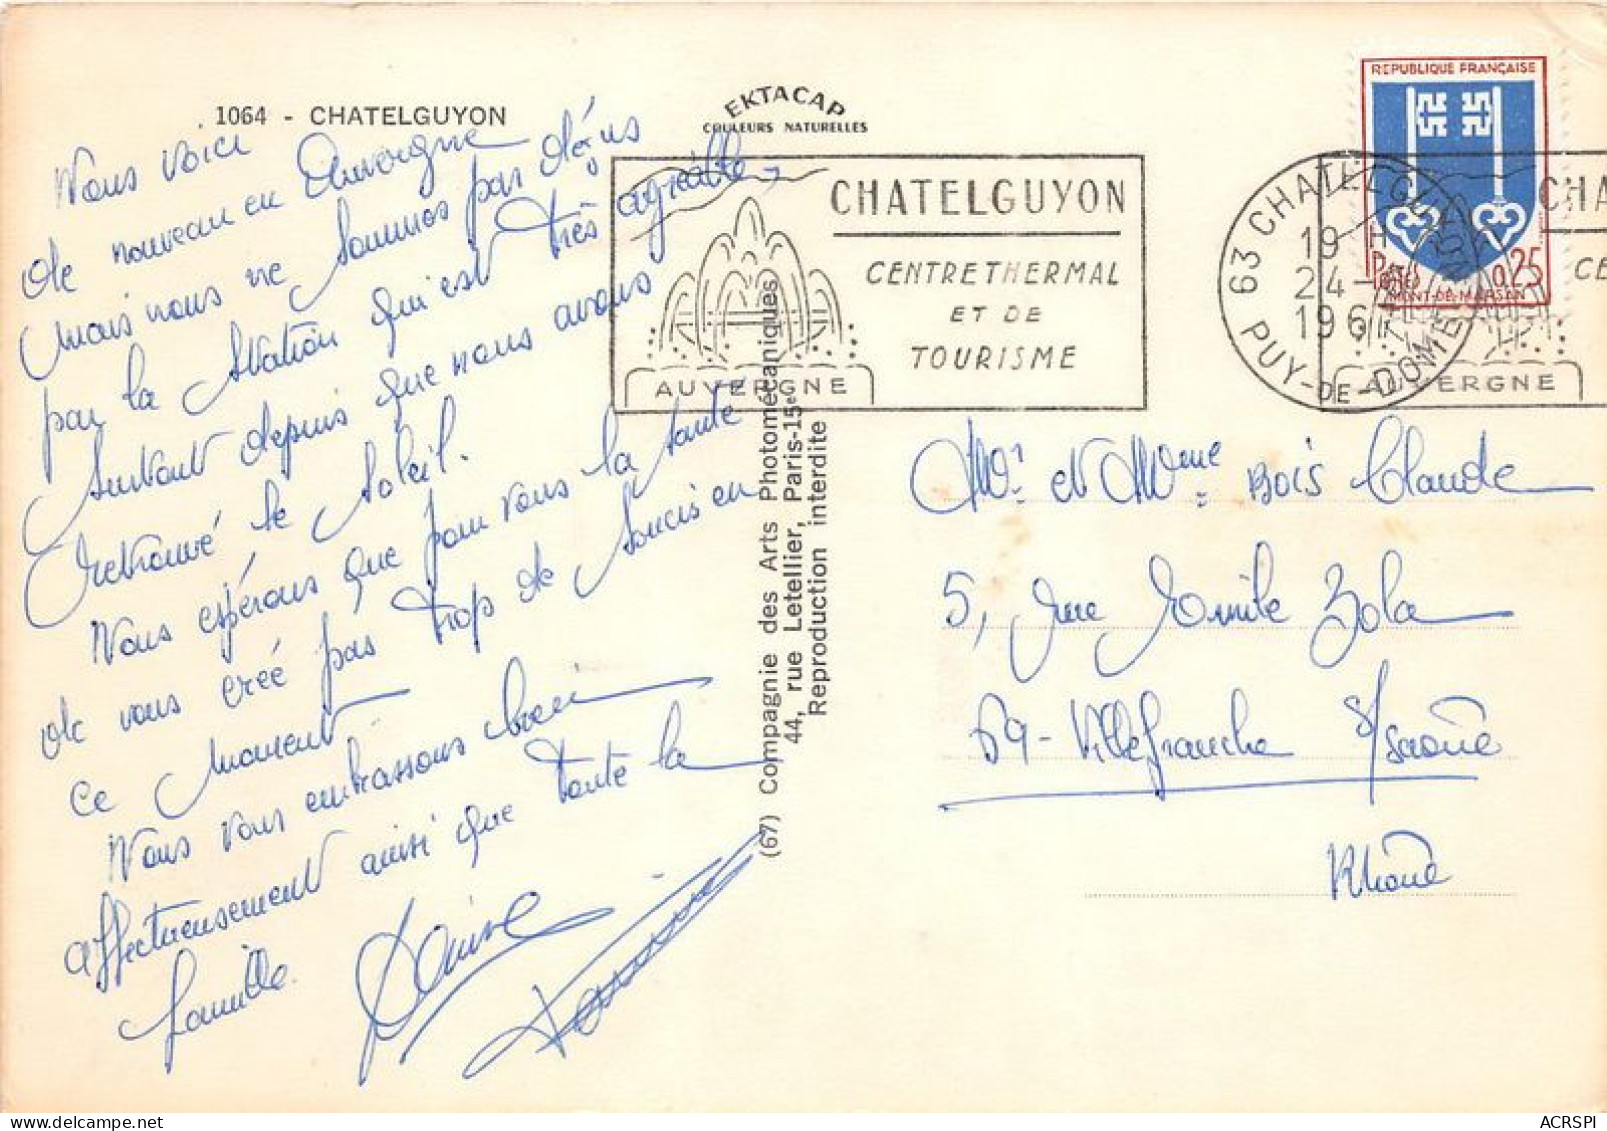 1064 - CHATELGUYON
EKTACAP
COULEURS NATURELLES
Nous voici
de nouveau en Auvergne
mais nous ne sommes pas déçus
par la station qui est très agréable
surtout depuis que nous avons
retrouvé le soleil.
Nous espérons que pour vous la santé
de vous créé pas trop de soucis en
ce moment
Nous vous embrassons bien
affectueusement ainsi que toute la
famille.
(67) Compagnie des Arts Photomécaniques
44, rue Letellier, Paris-15e
Reproduction interdite
CHATELGUYON
CENTRE THERMAL
ET DE
TOURISME
AUVERGNE
REPUBLIQUE FRANÇAISE
0,25
MONT-DE-MARSAN
63 CHATELGUYON
19 H
24 -
196
PUY-DE-DOME
CHA
CE
AUVERGNE
Mr. et Mme. Bois Claude
5, rue Emile Zola
69-Villefranche s/saône
Rhône
ACRSPI